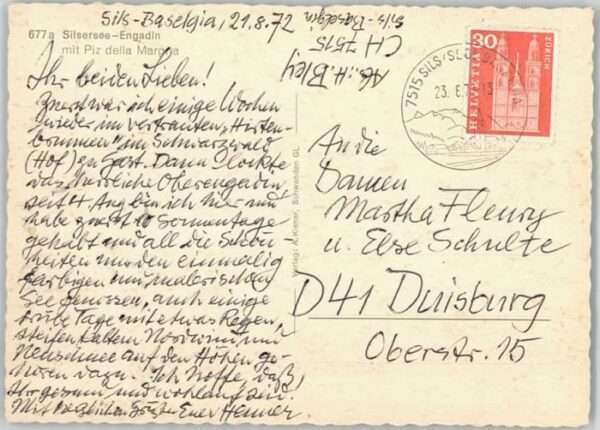 Sils-Baselgia, 21.8.72
677a Silsersee–Engadin
mit Piz della Margna
Ihr beiden Lieben!
Zuerst war ich einige Wochen
wieder im vertrauten "Hirten-
brunnen" im Schwarzwald
(Hof) zu Gast. Dann lockte
das herrliche Oberengadin,
seit 4. Aug bin ich hier und
habe zuerst 10 Sonnentage
gehabt und all die Schön-
heiten um den einmalig
farbigen und malerischen
See genossen, auch einige
trübe Tage mit etwas Regen,
steifen kaltem Nordwind und
Neuschnee auf den Höhen ge-
hören dazu. Ich hoffe, daß
Ihr gesund und wohlauf seid.
Mit herzlichen Grüßen Euer Henner
Abs. H. Bley
CH 7515
Sils-Baselgia
Verlag: A. Wiener, Schwanden GL
7515 SILS/
23. 8. 7
HELVETIA
30
ZÜRICH
An die
Damen
Martha Fleury
u. Else Schulte
D41 Duisburg
Oberstr. 15